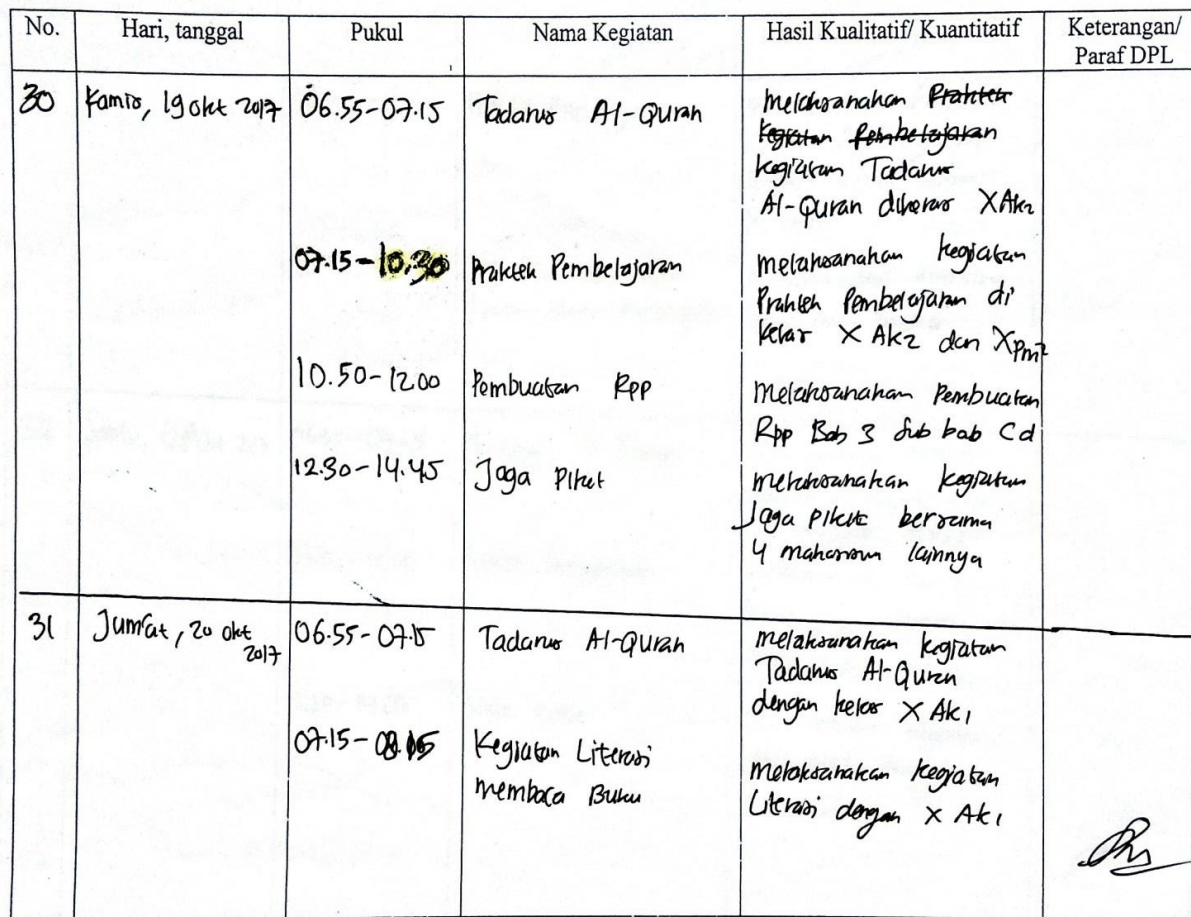 No. Hari, tanggal Pukul Nama Kegiatan Hasil Kualitatif/ Kuantitatif Keterangan/
Paraf DPL
30 Kamis, 19 okt 2017 06.55-07.15 Tadarus Al-Quran Melaksanakan Praktek
kegiatan Pembelajaran
kegiatan Tadarus
Al-Quran dikelas X Ak2
07.15-10.30 Praktek Pembelajaran melaksanakan kegiatan
Praktek Pembelajaran di
kelas X Ak2 dan X Pm2
10.50-12.00 Pembuatan Rpp Melaksanakan Pembuatan
Rpp Bab 3 Sub bab Cd
12.30-14.45 Jaga Piket melaksanakan kegiatan
Jaga piket bersama
4 mahasiswa lainnya
31 Jum'at, 20 okt 2017 06.55-07.15 Tadarus Al-Quran melaksanakan kegiatan
Tadarus Al-Quran
dengan kelas X Ak1
07.15-08.15 Kegiatan Literasi
membaca Buku melaksanakan kegiatan
Literasi dengan X Ak1